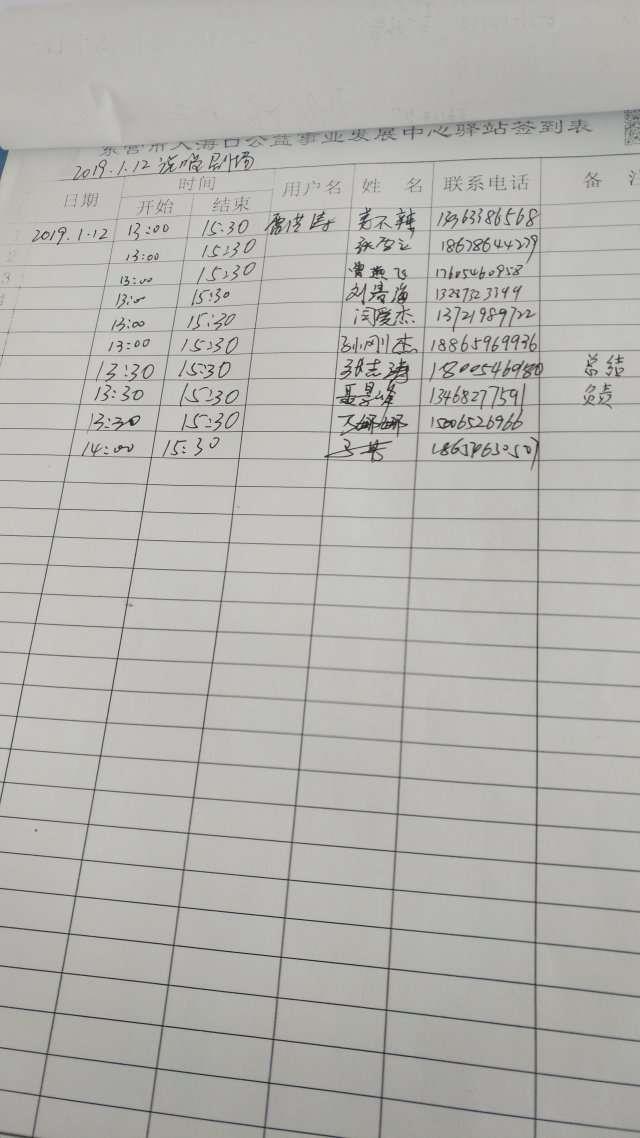 东营市大海口公益事业发展中心驿站签到表
2019.1.12 说唱剧场
日期 时间 用户名 姓 名 联系电话 备 注
开始 结束
2019.1.12 13:00 15:30 13963386568
13:00 15:30 18678644279
13:00 15:30 17605460958
13:00 15:30 刘景海 13287323399
13:00 15:30 闫爱杰 13721989722
13:00 15:30 孙刚杰 18865969936
13:30 15:30 张志涛 18005469980 总结
13:30 15:30 聂景峰 13468277591 负责
13:30 15:30 15006526966
14:00 15:30